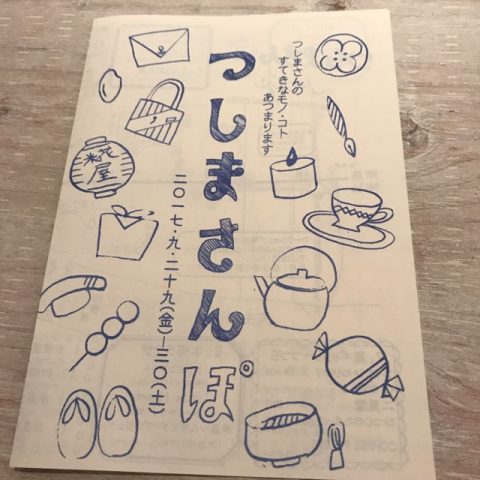 つしまさんの
すてきなモノ・コト
あつまります
つしまさんぽ
二〇一七・九・二十九(金)ー三〇(土)
糀屋